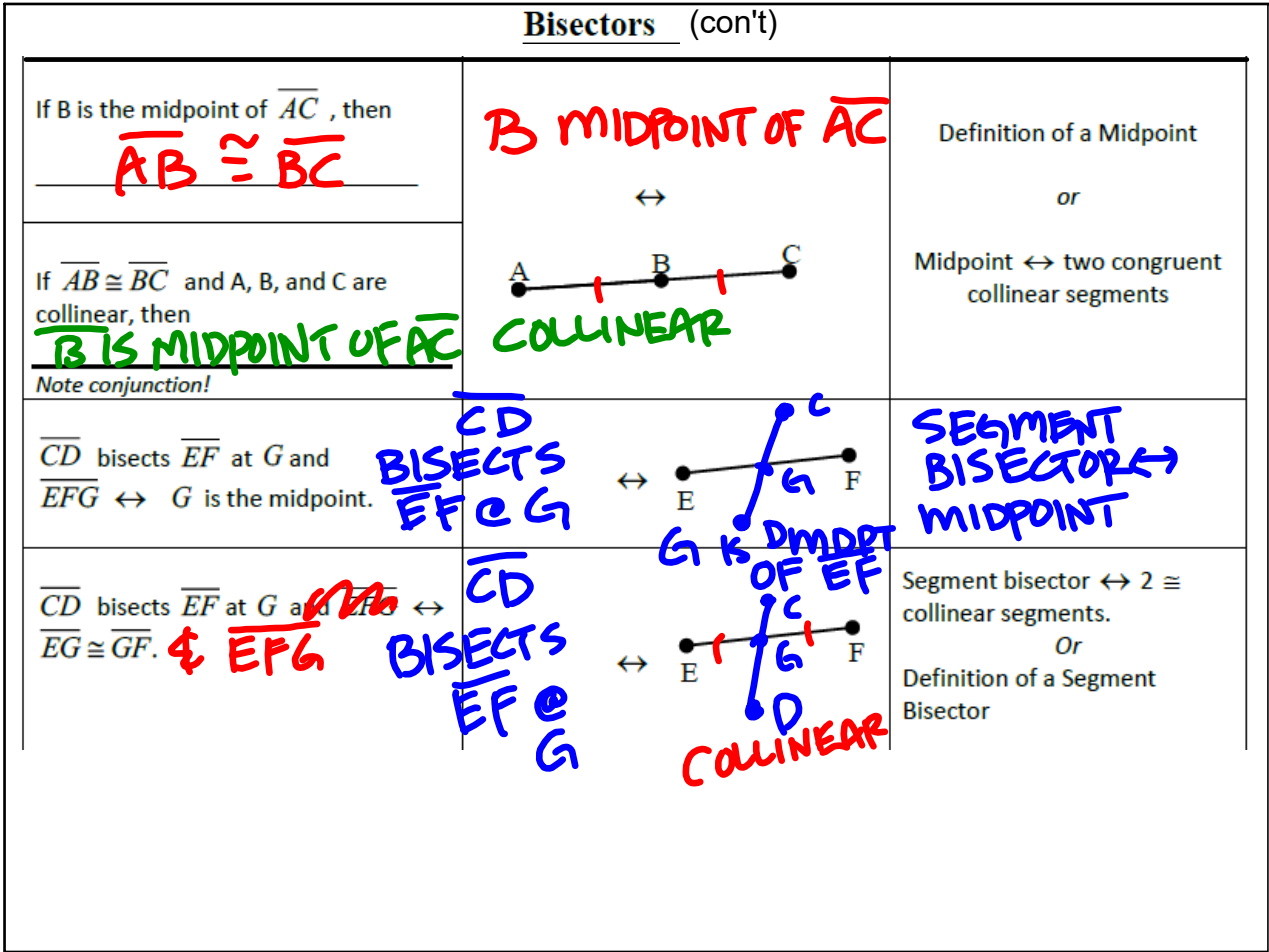 Bisectors (con't)
If B is the midpoint of AC , then
AB ≅ BC
B MIDPOINT OF AC
↔
A B C
COLLINEAR
Definition of a Midpoint
or
Midpoint ↔ two congruent
collinear segments
If AB ≅ BC and A, B, and C are
collinear, then
B IS MIDPOINT OF AC
Note conjunction!
CD bisects EF at G and
EFG ↔ G is the midpoint.
CD
BISECTS
EF @ G
↔
C
E G F
D
G IS MDPT
OF EF
SEGMENT
BISECTOR↔
MIDPOINT
CD bisects EF at G and EFG ↔
EG ≅ GF. & EFG
CD
BISECTS
EF @
G
↔
C
E G F
D
COLLINEAR
Segment bisector ↔ 2 ≅
collinear segments.
Or
Definition of a Segment
Bisector